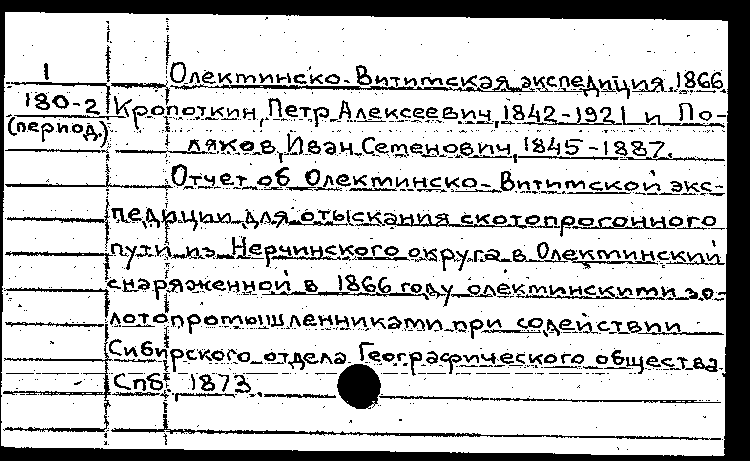 1 Олекминско-Витимская экспедиция. 1866
180-2 Кропоткин, Петр Алексеевич, 1842-1921 и По-
(период.)
ляков, Иван Семенович, 1845-1887.
Отчет об Олекминско-Витимской экс-
педиции для отыскания скотопрогонного
пути из Нерчинского округа в Олекминский
снаряженной в 1866 году олекминскими зо-
лотопромышленниками при содействии
Сибирского отдела Географического общества.
Спб., 1873.